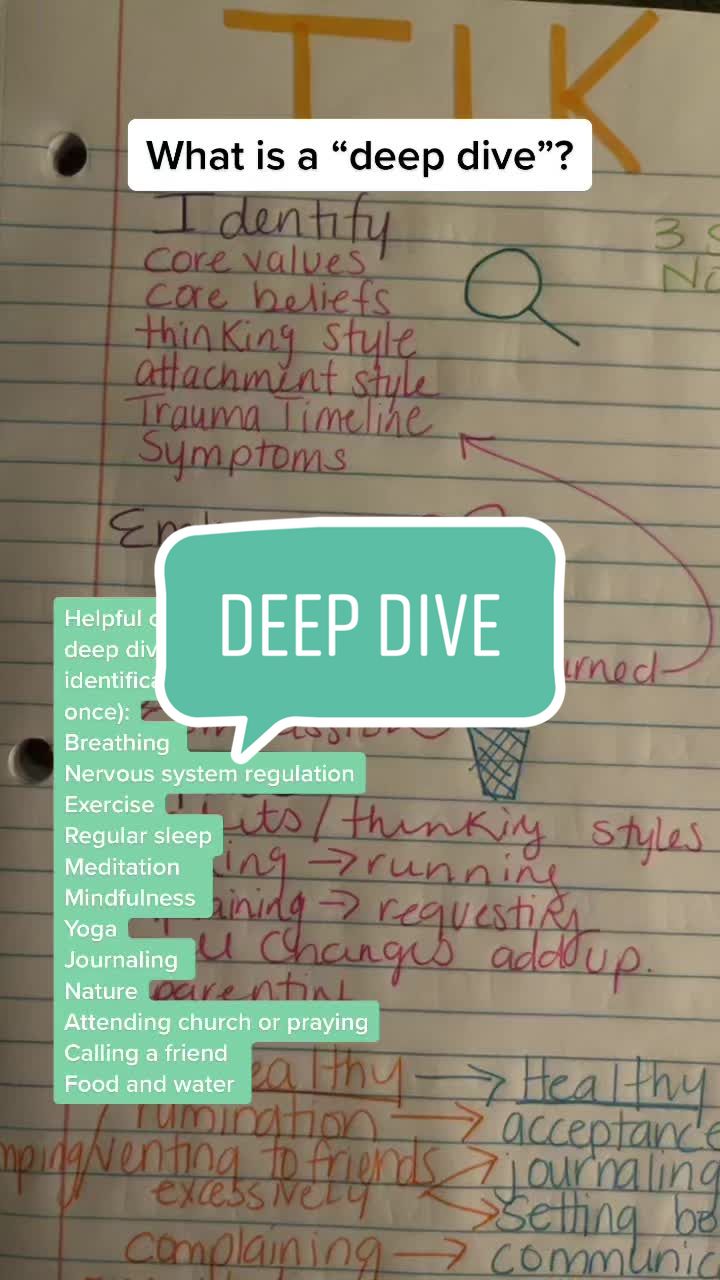 TIK
What is a “deep dive”?
Identify
core values
core beliefs
thinking style
attachment style
Trauma Timeline
Symptoms
3
DEEP DIVE
Helpful
deep
once):
Breathing
Nervous system regulation
Exercise
Regular sleep
Meditation
Mindfulness
Yoga
Journaling
Nature
Attending church or praying
Calling a friend
Food and water
/thinking styles
→running
→requesting
changes add up.
parenting
→Healthy
rumination → acceptance
venting to friends → journaling
excessively → setting
complaining →